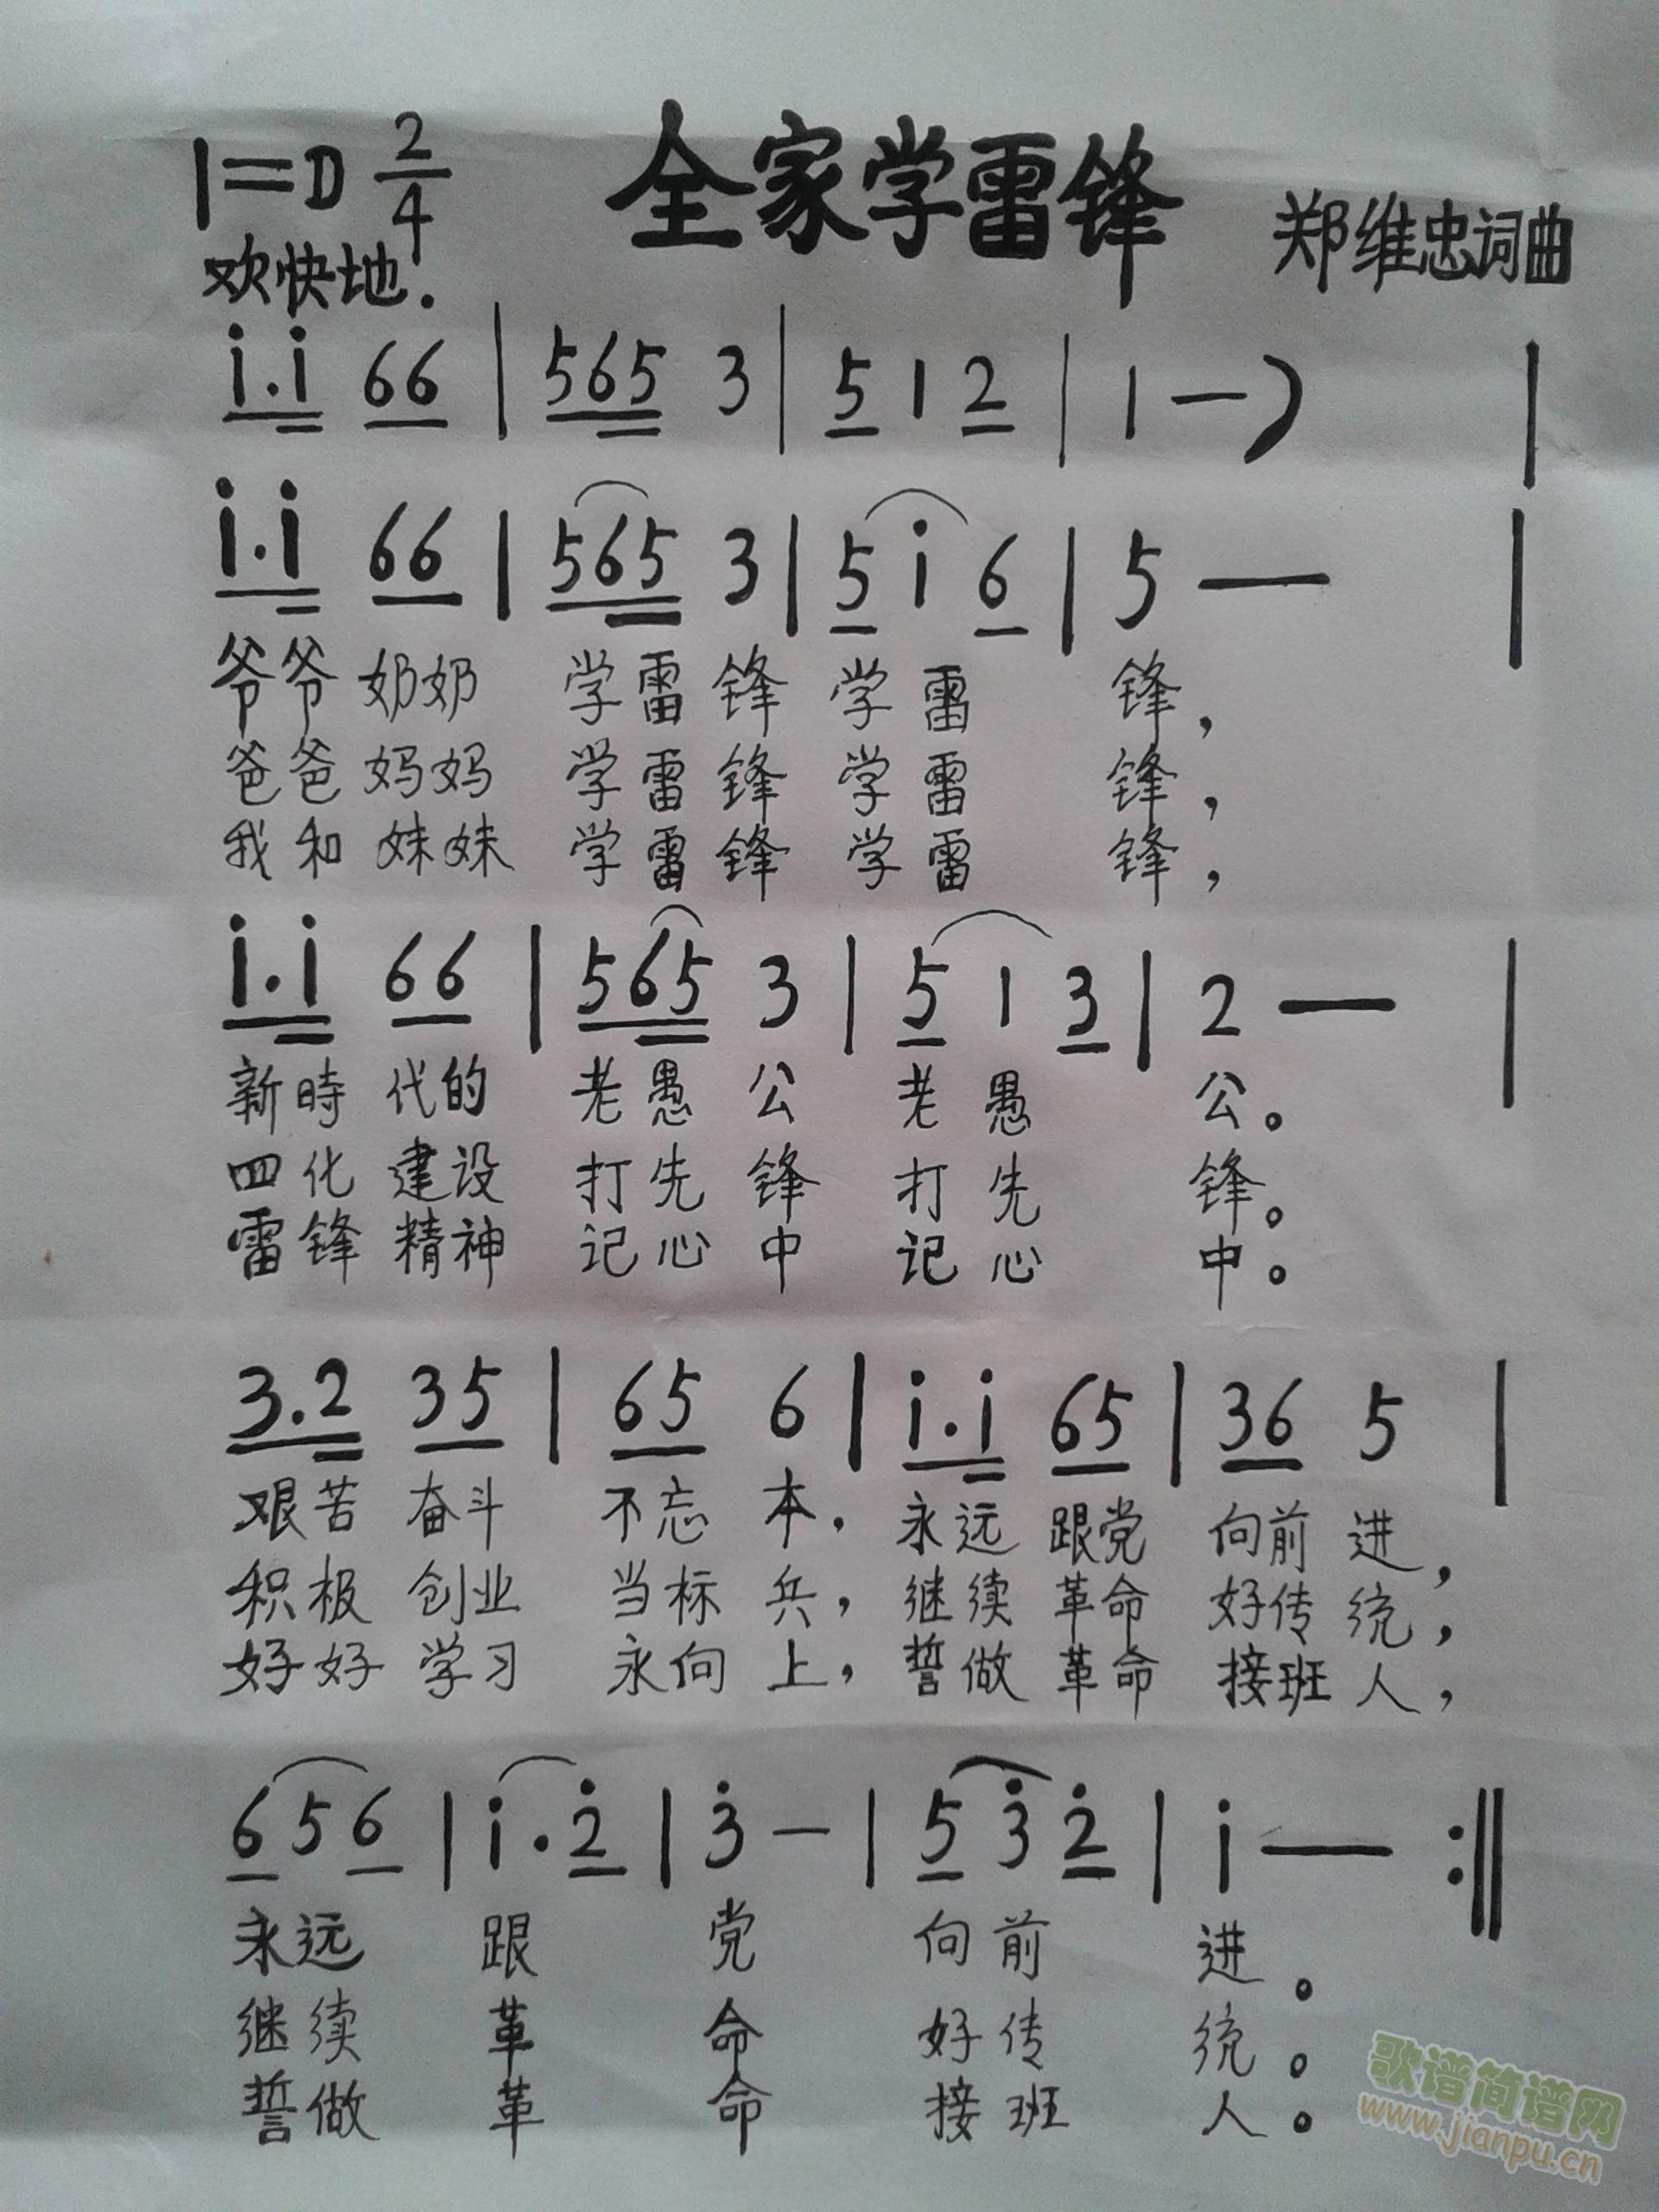 1=D 2/4 全家学雷锋 郑维忠词曲
欢快地.
i.i 66 | 565 3 | 5 1 2 | 1 — ) |
i.i 66 | 565 3 | 5 i 6 | 5 — |
爷爷 奶奶 学雷锋 学雷 锋，
爸爸 妈妈 学雷锋 学雷 锋，
我和 妹妹 学雷锋 学雷 锋，
i.i 66 | 565 3 | 5 1 3 | 2 — |
新時 代的 老愚公 老愚 公。
四化 建设 打先锋 打先 锋。
雷锋 精神 记心中 记心 中。
3.2 35 | 65 6 | i.i 65 | 36 5 |
艰苦 奋斗 不忘 本，永远 跟党 向前 进，
积极 创业 当标 兵，继续 革命 好传 统，
好好 学习 永向 上，誓做 革命 接班 人，
6 5 6 | i . 2̇ | 3̇ — | 5 3̇ 2̇ | i — :‖
永远 跟 党 向前 进。
继续 革 命 好传 统。
誓做 革 命 接班 人。
歌谱简谱网
www.jianpu.cn